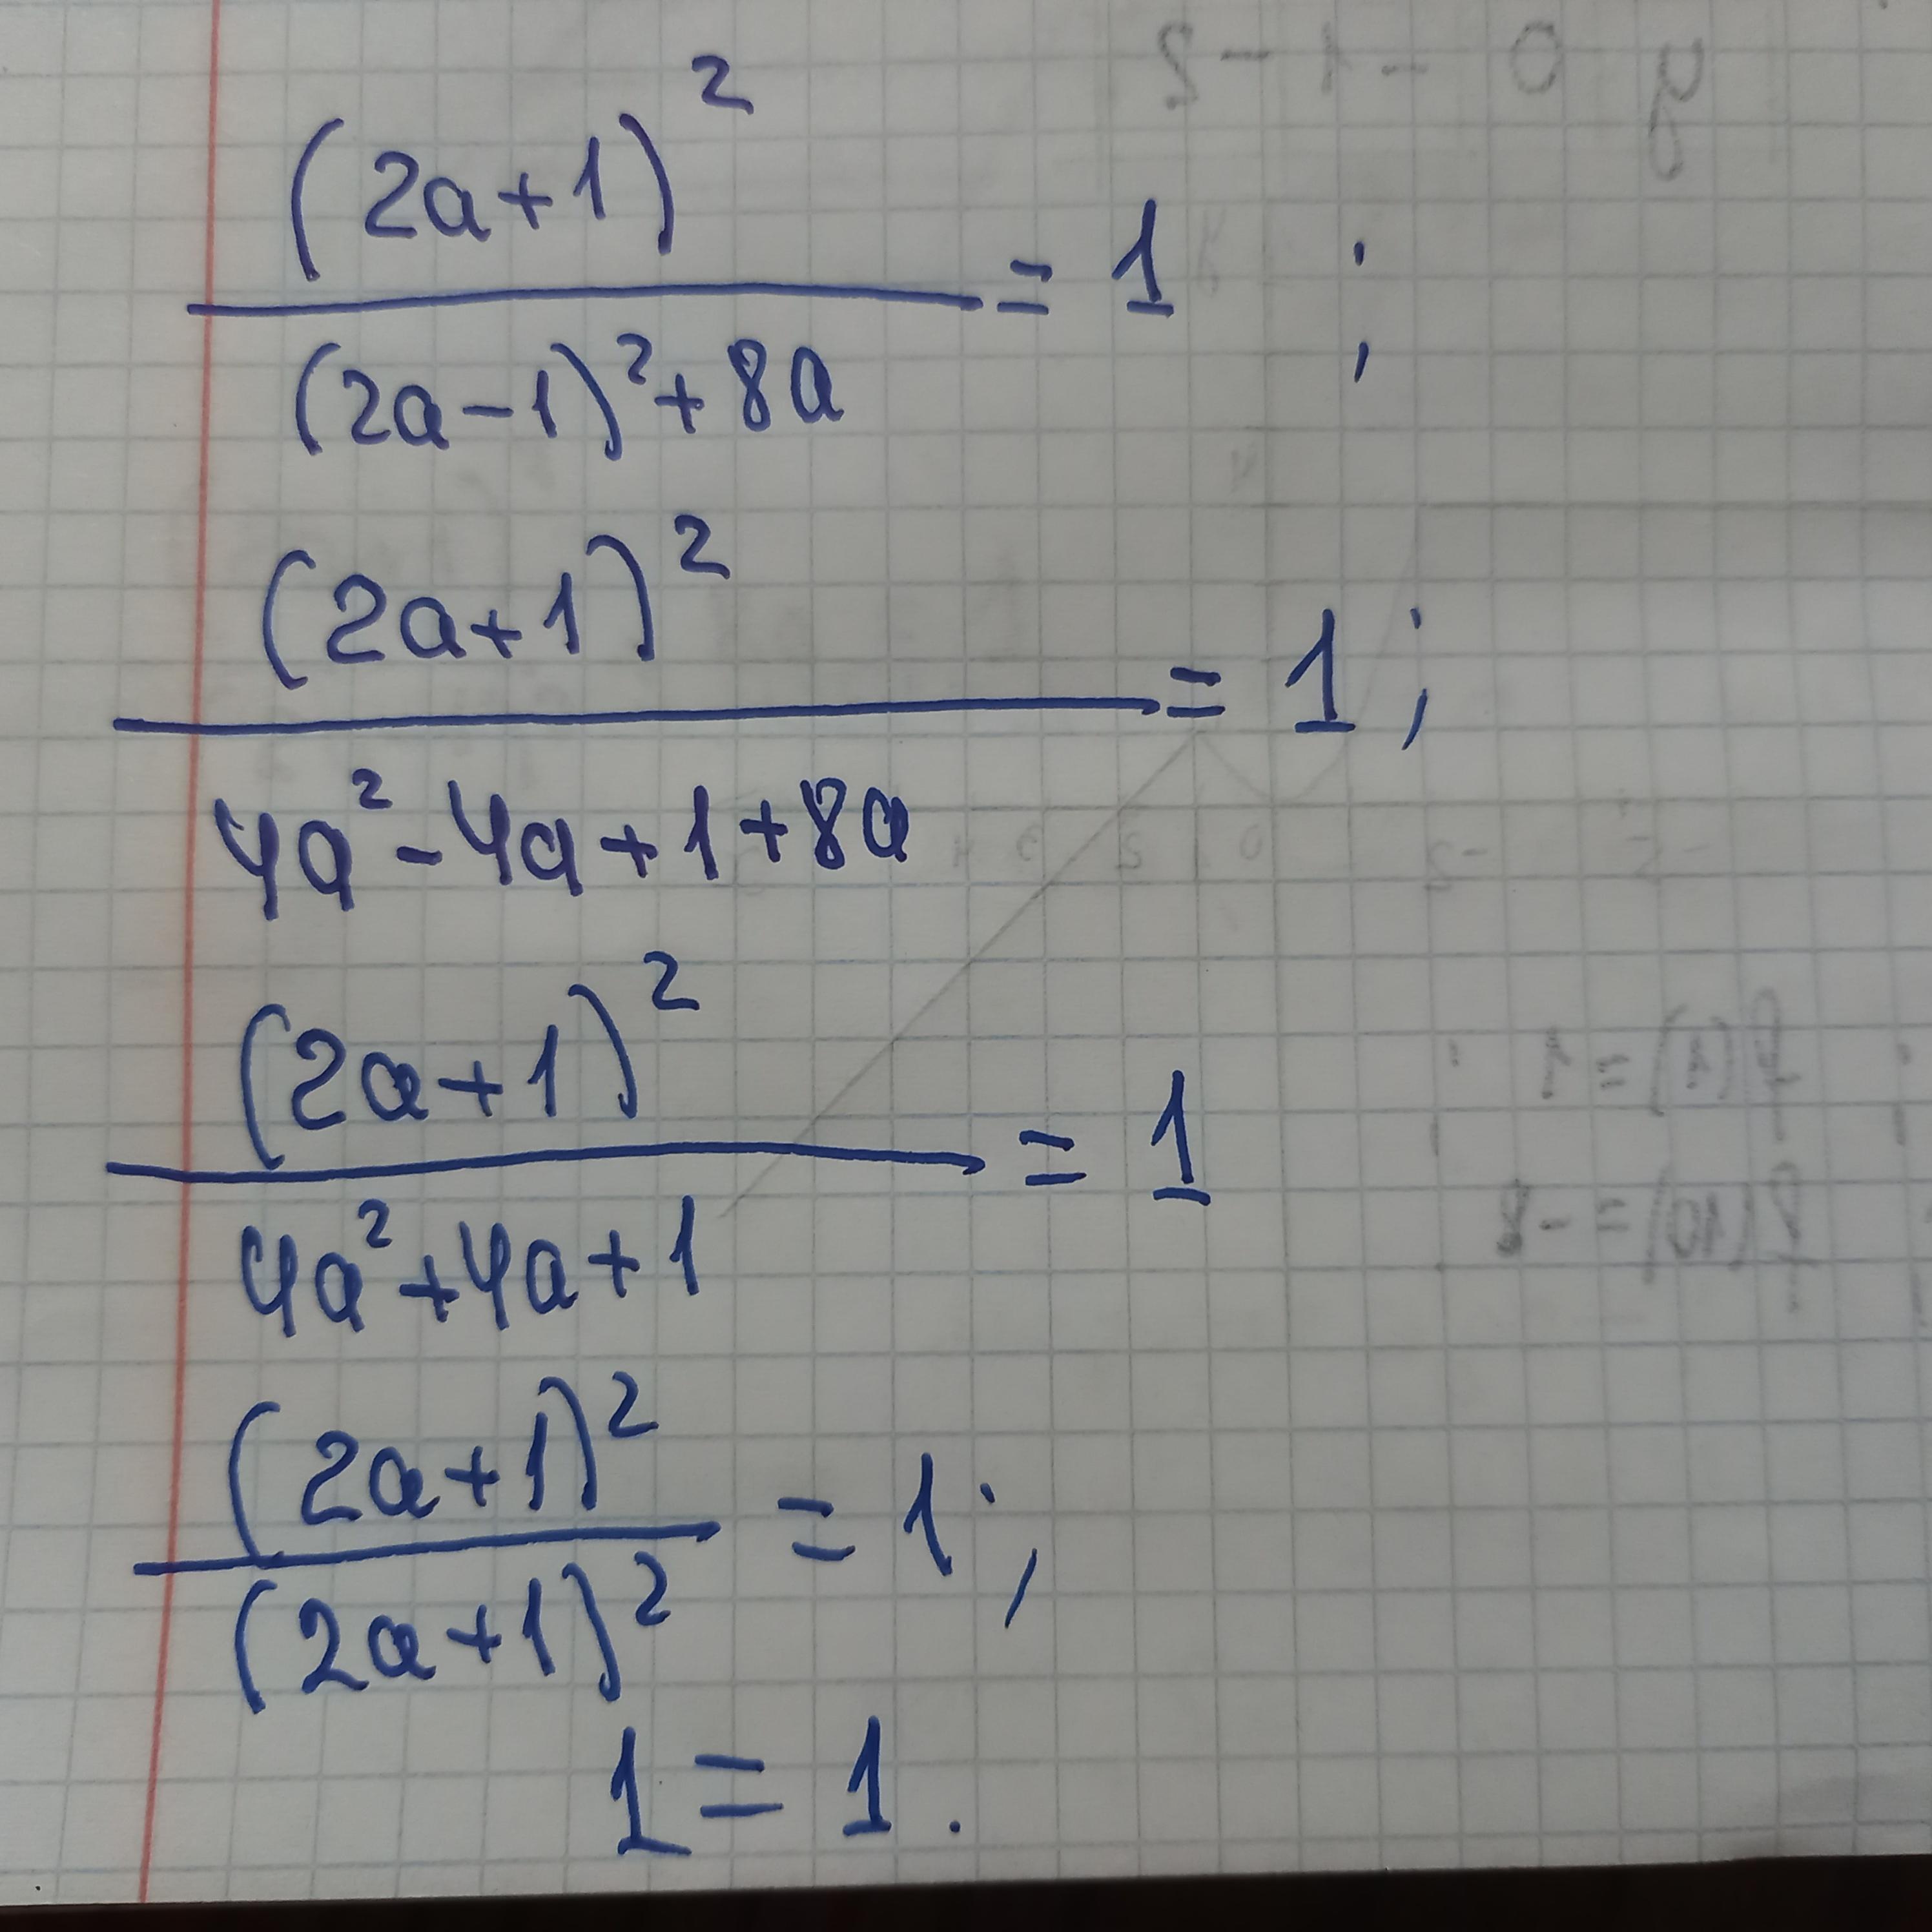 (2a+1)²
/ (2a-1)²+8a = 1 ;
(2a+1)²
/ 4a²-4a+1+8a = 1 ;
(2a+1)²
/ 4a²+4a+1 = 1
(2a+1)²
/ (2a+1)² = 1 ;
1 = 1 .